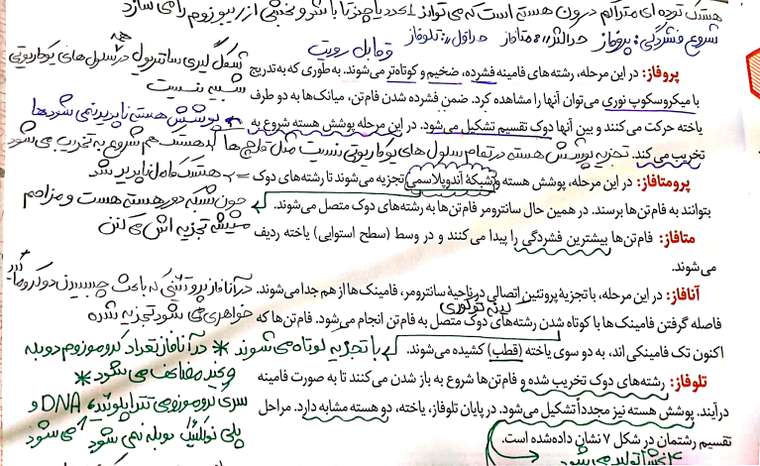 هستک توده ای متراکم درون هسته است که می تواند 1 عدد یا چند تا باشد و بخشی از ریبوزوم را می سازد
شروع فشردگی: پروفاز حداکثر: متافاز حداقل: تلوفاز
و قابل رویت
شکل گیری سانتریول در همه سلول های یوکاریوتی
شبیه نیست
پروفاز: در این مرحله، رشته‌های فامینه فشرده، ضخیم و کوتاه‌تر می‌شوند. به‌طوری که به‌تدریج
با میکروسکوپ نوری می‌توان آنها را مشاهده کرد. ضمن فشرده شدن فام‌تن، میانک‌ها به دو طرف
یاخته حرکت می‌کنند و بین آنها دوک تقسیم تشکیل می‌شود. در این مرحله پوشش هسته شروع به
پوشش هسته ناپدید نمی شود
تخریب می‌کند.
تجزیه پوشش هسته در تمام سلول های یوکاریوتی نیست مثل قارچ ها
هستک هم شروع به تخریب می شود
پرومتافاز: در این مرحله، پوشش هسته و شبکهٔ آندوپلاسمی تجزیه می‌شوند تا رشته‌های دوک
هستک کامل ناپدید شد
بتوانند به فام‌تن‌ها برسند. در همین حال سانترومر فام‌تن‌ها به رشته‌های دوک متصل می‌شوند.
چون شبکه دور هسته هست و مزاحم
میشه تجزیه اش می کنن
متافاز: فام‌تن‌ها بیشترین فشردگی را پیدا می‌کنند و در وسط (سطح استوایی) یاخته ردیف
می‌شوند.
آنافاز: در این مرحله، با تجزیهٔ پروتئین اتصالی در ناحیهٔ سانترومر، فامینک‌ها از هم جدا می‌شوند.
در آنافاز پروتئینی که باعث چسبیدن دو کروماتید
خواهری می شود تجزیه شده
فاصله گرفتن فامینک‌ها با کوتاه شدن رشته‌های دوک متصل به فام‌تن انجام می‌شود. فام‌تن‌ها که
اکنون تک فامینکی اند، به دو سوی یاخته (قطب) کشیده می‌شوند.
با تجزیه کوتاه می شوند
* در آنافاز تعداد کروموزوم دوبله
و مضاعف می شود *
تلوفاز: رشته‌های دوک تخریب شده و فام‌تن‌ها شروع به باز شدن می‌کنند تا به صورت فامینه
درآیند. پوشش هسته نیز مجدداً تشکیل می‌شود. در پایان تلوفاز، یاخته، دو هسته مشابه دارد. مراحل
سری کروموزومی تتراپلوئید، DNA و
پلی نوکلئید دوبله نمی شود
تقسیم رشتمان در شکل ۷ نشان داده‌شده است.